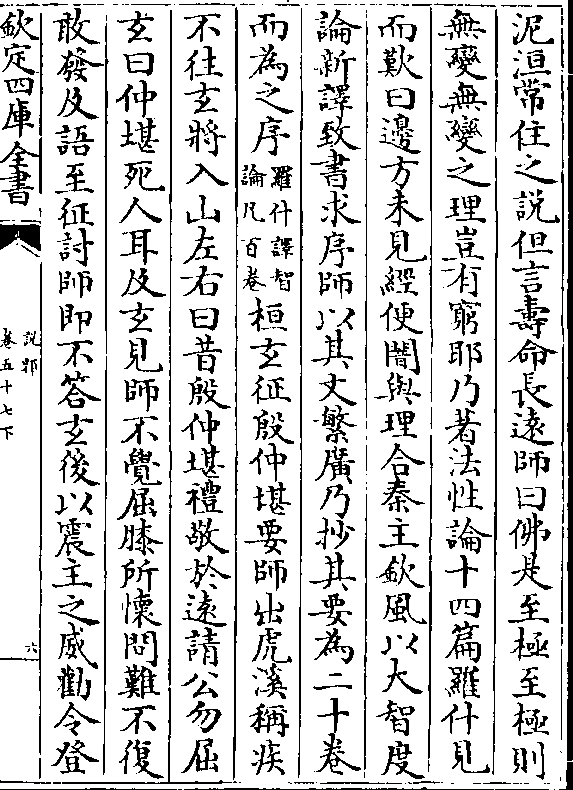 泥洹常住之說但言壽命長遠師曰佛是至極至極則
無變無變之理豈有窮耶乃著法性論十四篇羅什見
而歎曰邊方未見經便闇與理合秦主欽風以大智度
論新譯致書求序師以其文繁廣乃抄其要為二十卷
而為之序羅什譯智論凡百卷桓玄征殷仲堪要師出虎溪稱疾
不往玄將入山左右曰昔殷仲堪禮敬於遠請公勿屈
玄曰仲堪死人耳及玄見師不覺屈膝所懷問難不復
敢發及語至征討師即不答玄後以震主之威勸令登
欽定四庫全書
說郛
卷五十七下
六